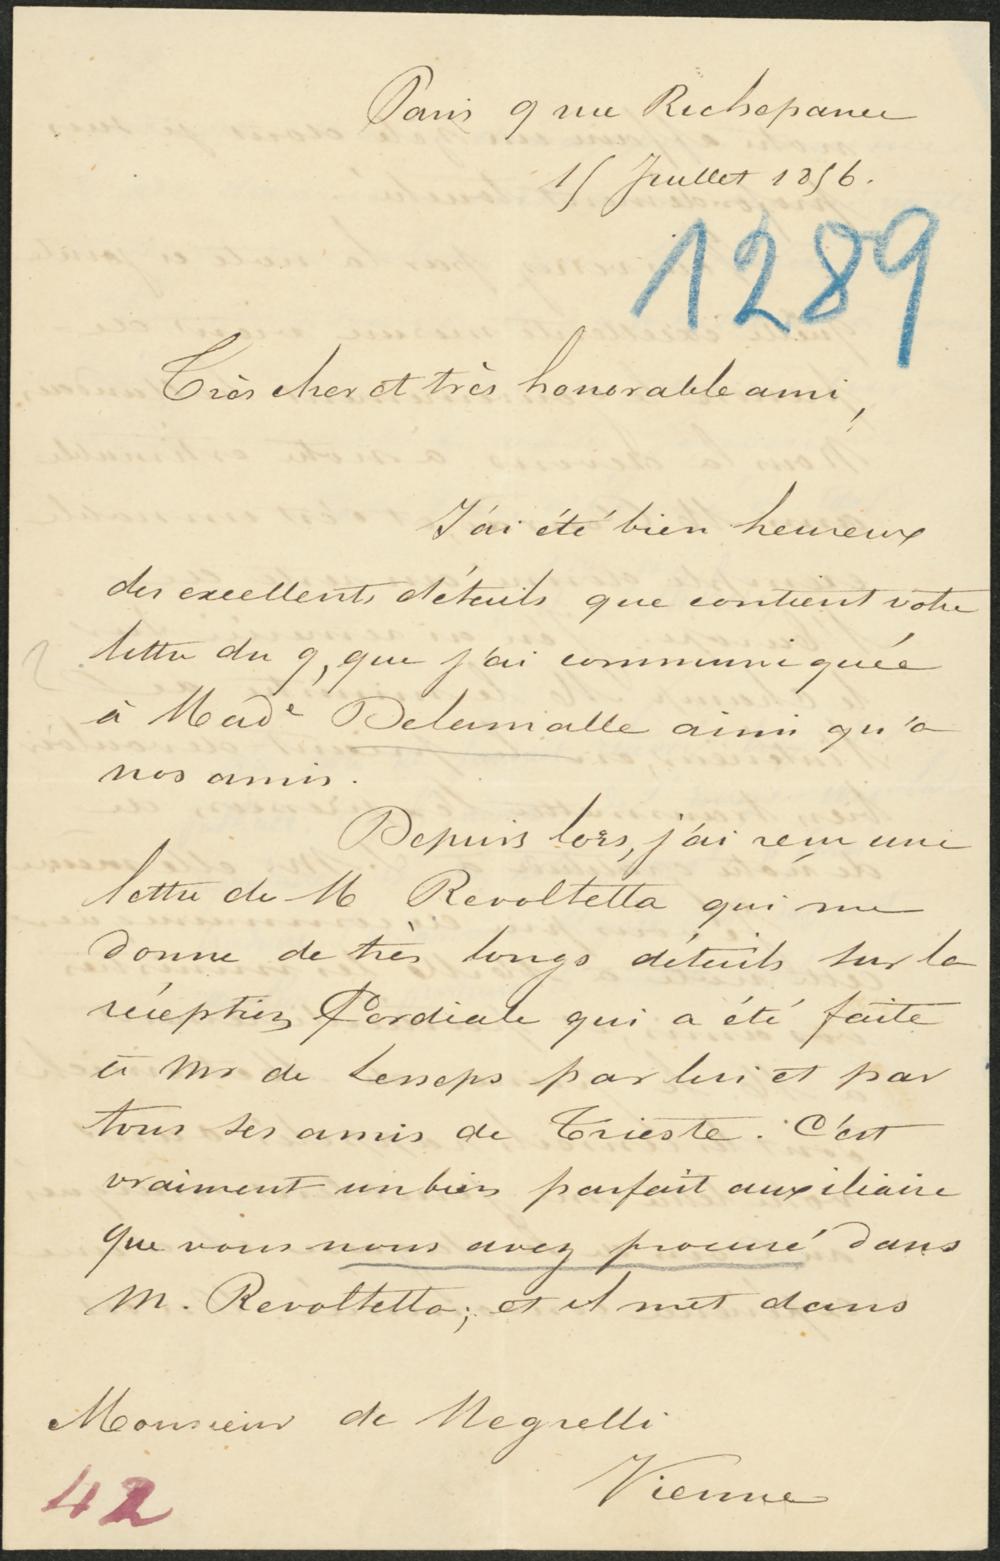 Paris 9 rue Richepanse
15 Juillet 1856.
1289
Très cher et très honorable ami,
J'ai été bien heureux
des excellents détails que contient votre
lettre du 9, que j'ai communiquée
à Made Delamalle ainsi qu'a
nos amis.
Depuis lors, j'ai reçu une
lettre de M Revoltella qui me
donne de très longs détails sur la
réception Cordiale qui a été faite
à Mr de Lesseps par lui et par
tous ses amis de Trieste. C'est
vraiment un bien parfait auxiliaire
que vous nous avez procuré dans
M. Revoltella; et il met dans
Monsieur de Negrelli
Vienne
42